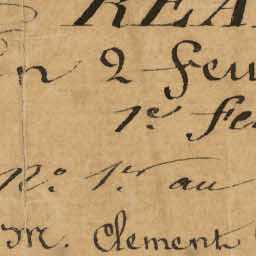 REA
En 2 feu
1re fe
No. 1er au
M. Clement